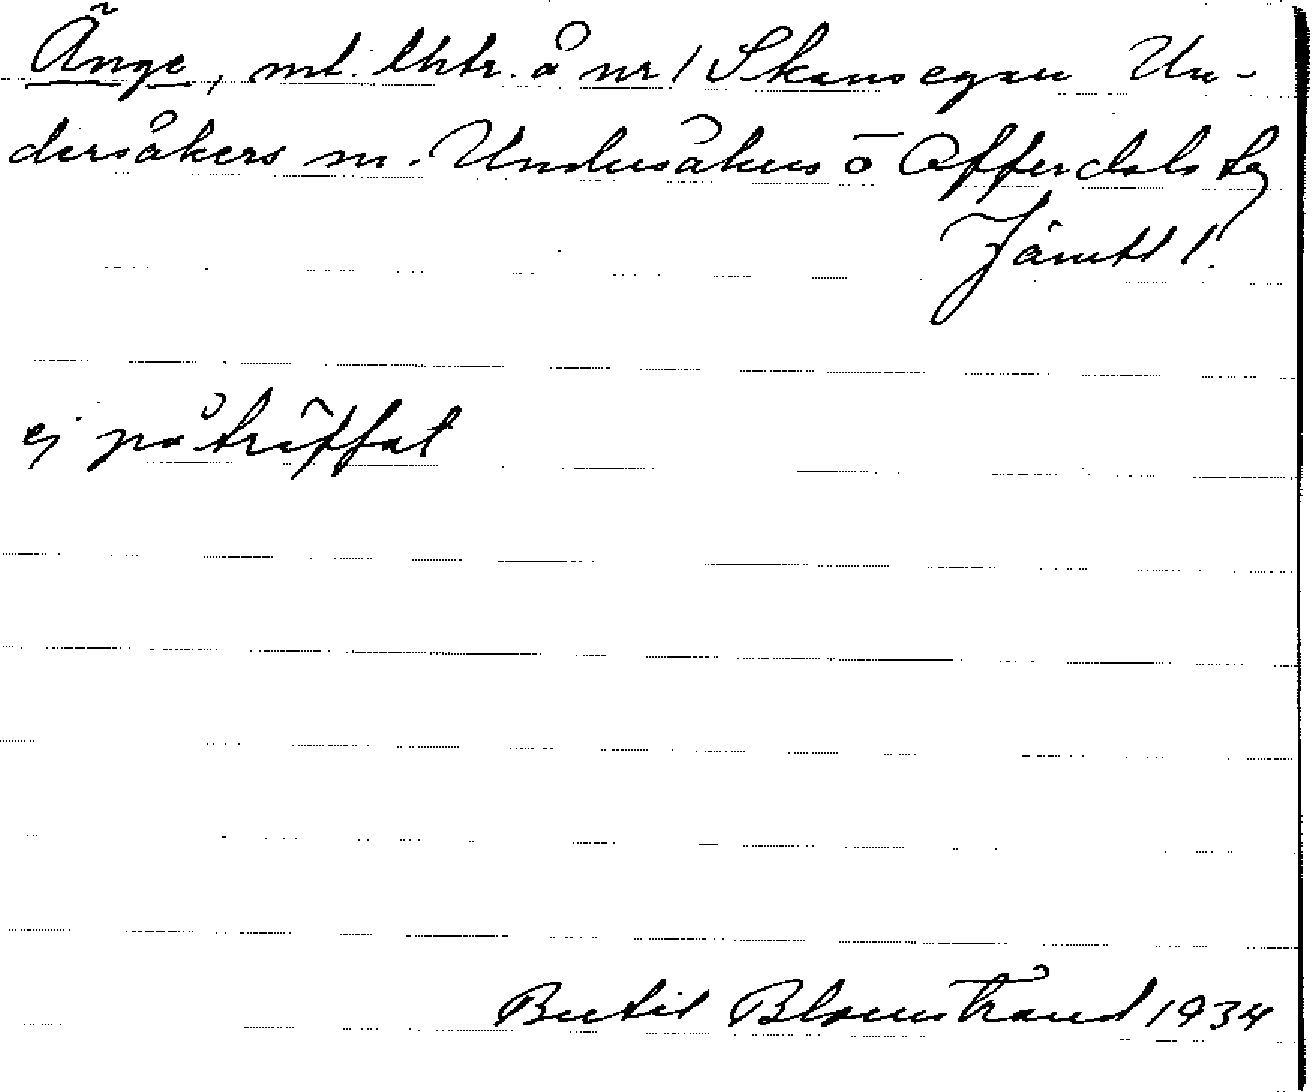 Änge, mt. lhtr. å nr 1 Skansegan Un-
dersåkers sn. Undersåkers o Offerdals tg
Jämtl l.
ej påträffat
Bertil Blomstrand 1934